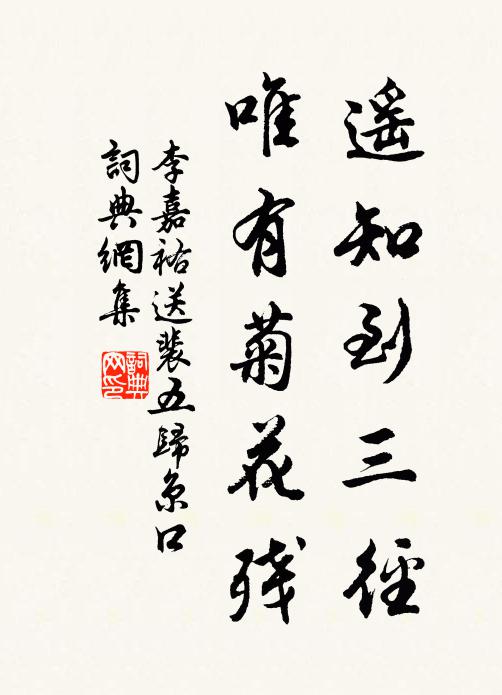 遥知到三徑
唯有菊花殘
李嘉祐送裴五歸京口
詞典網集
詞典网印